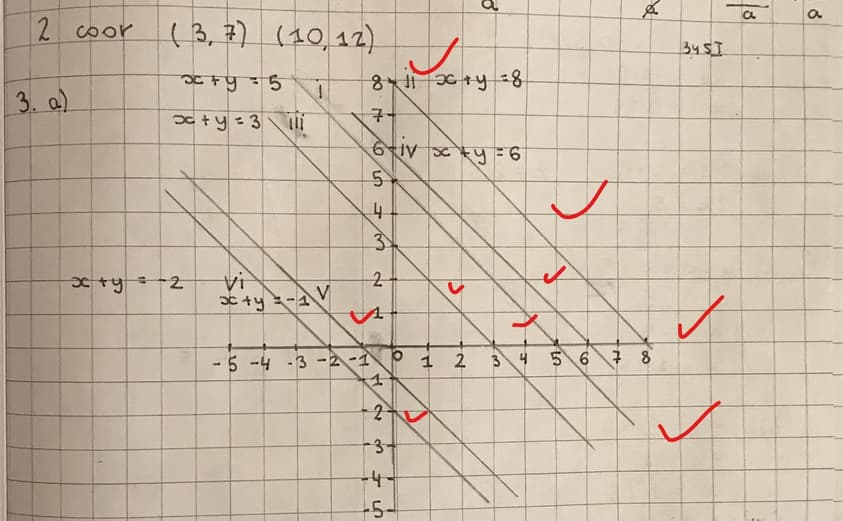 a a a a
2 coor (3,7) (10,12)
345I
3. a)
x+y=5 i 8 ii x+y=8
7
x+y=3 iii
6 iv x+y=6
5
4
3
2
x+y=-2 vi
x+y=-1 v
1
-5 -4 -3 -2 -1 0 1 2 3 4 5 6 7 8
-1
-2
-3
-4
-5